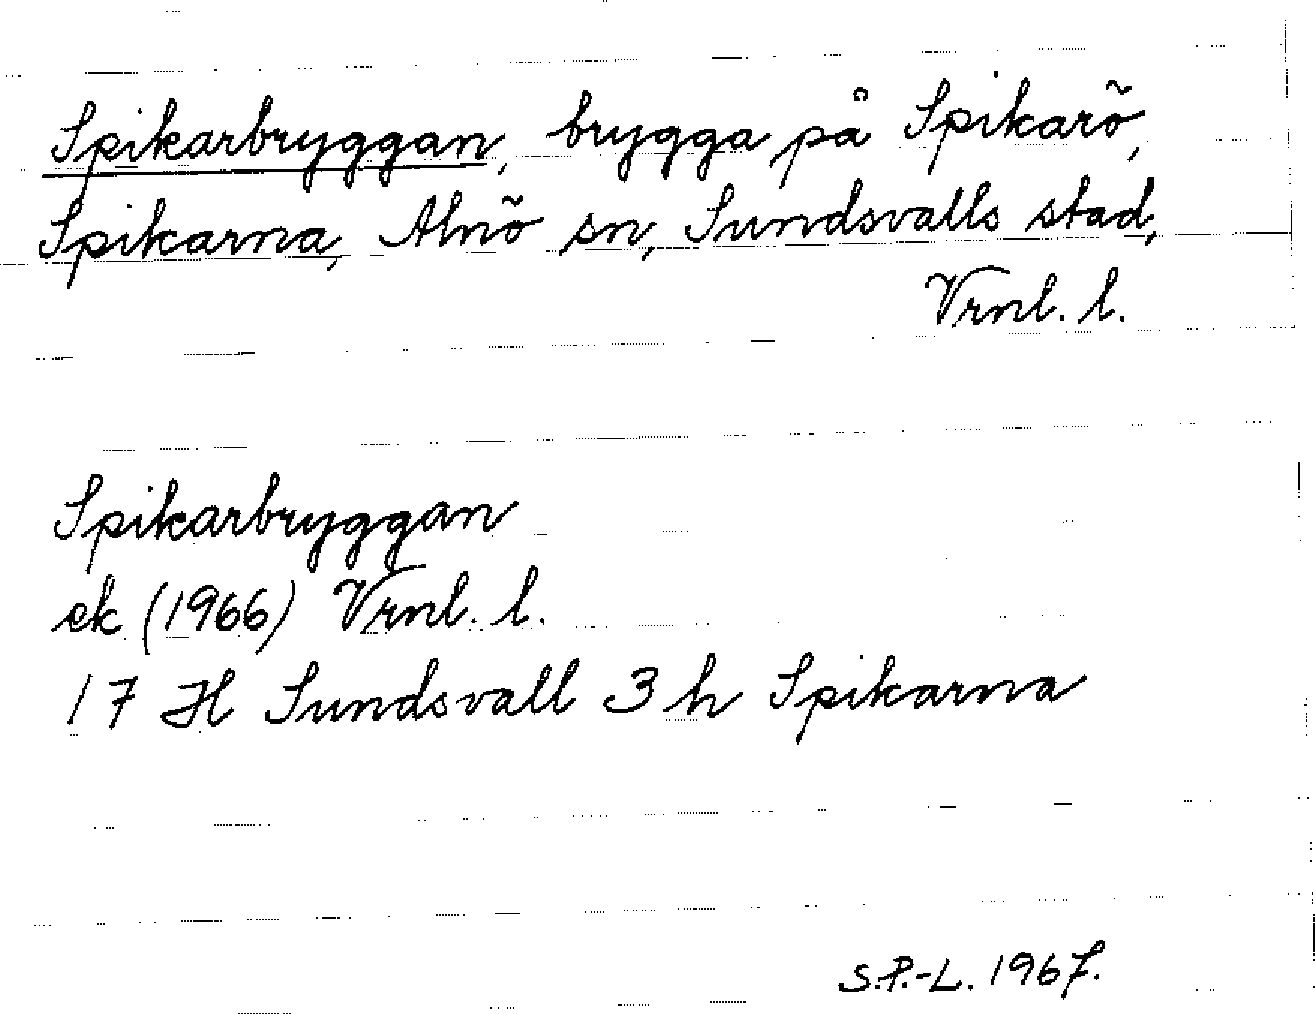 Spikarbryggan, brygga på Spikarö,
Spikarna, Alnö sn, Sundsvalls stad,
Vrnl. l.
Spikarbryggan
ek (1966) Vrnl. l.
17 H Sundsvall 3 h Spikarna
S.P.-L. 1967.